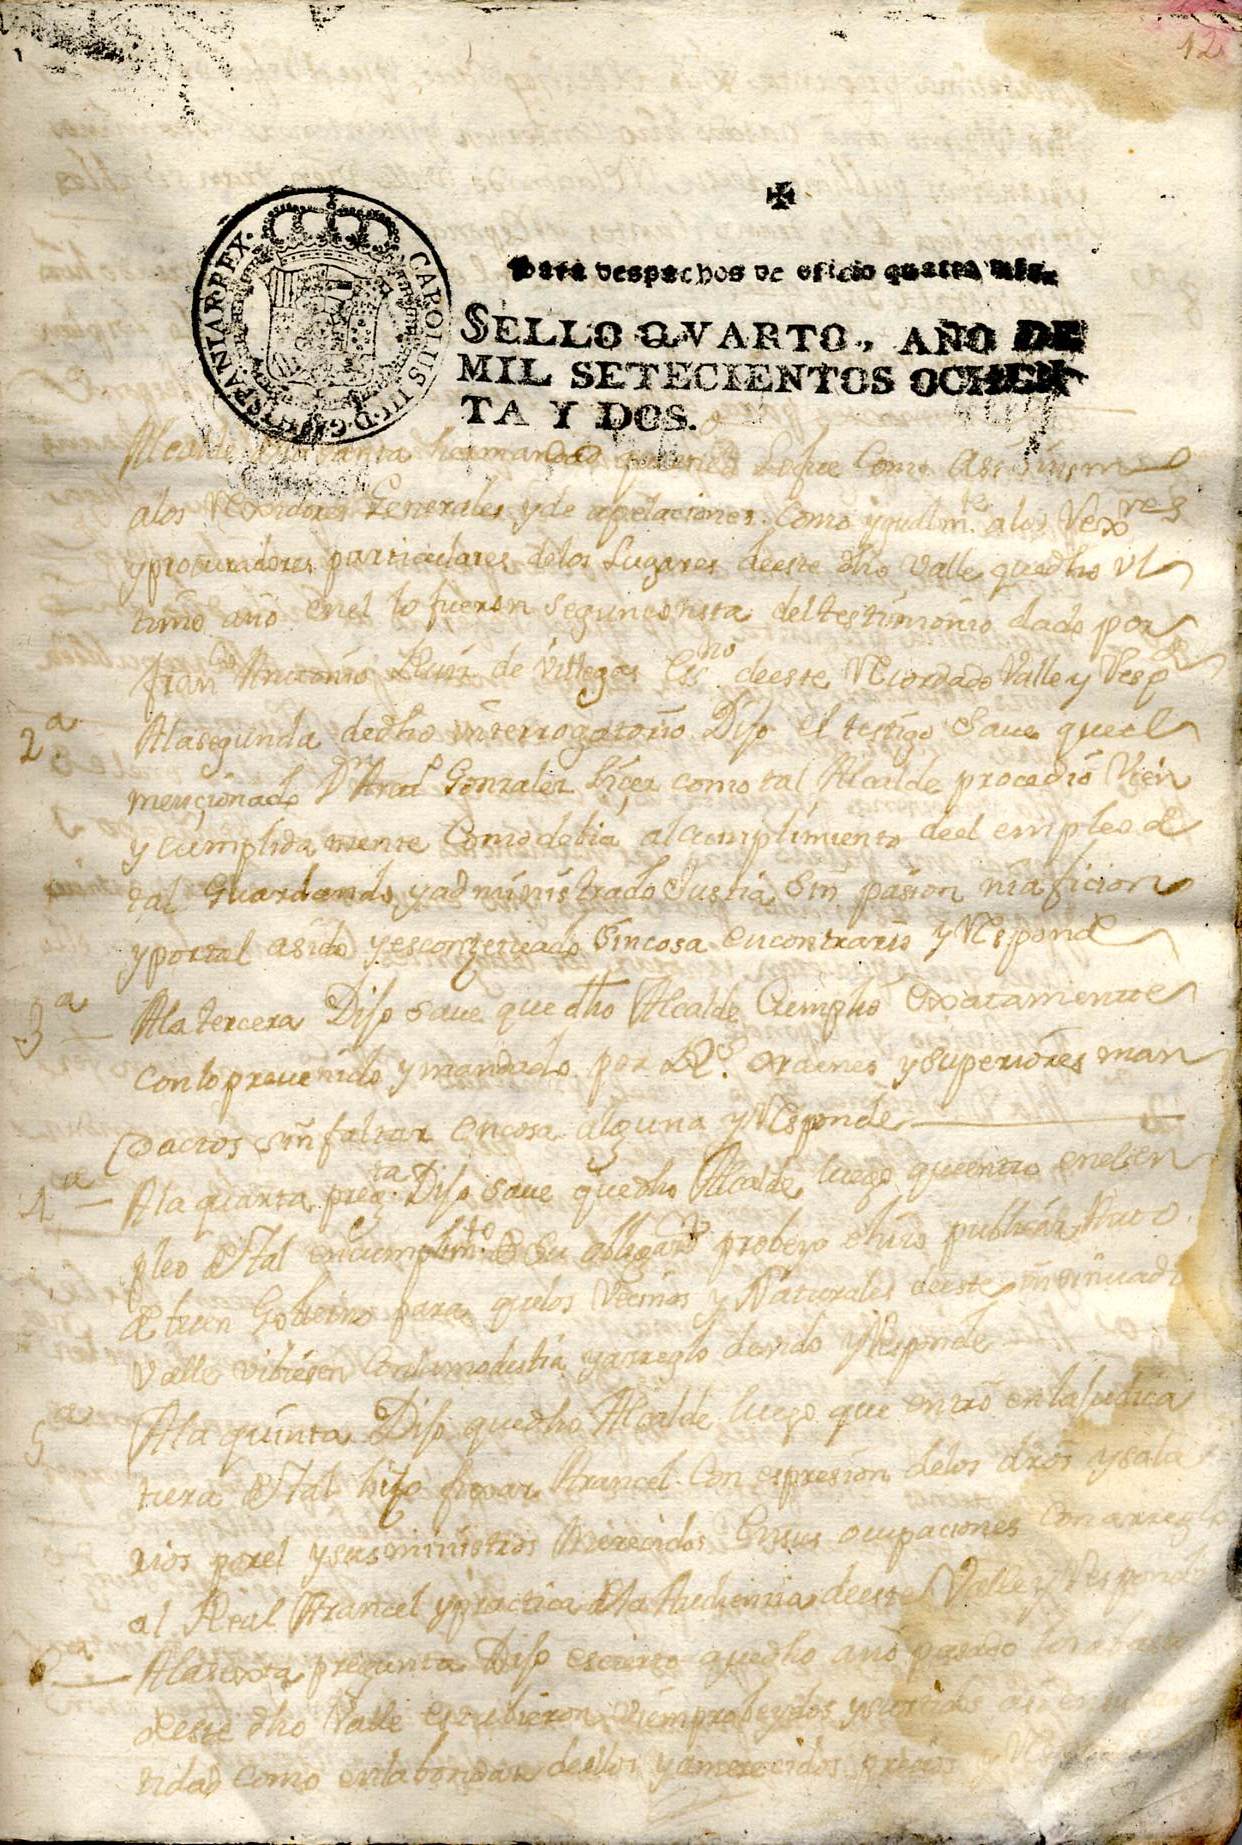 12
✠
Para despachos de oficio quatro mrs.
SELLO QVARTO, AÑO DE
MIL SETECIENTOS OCHEN
TA Y DOS.
CAROLUS III D. G. HISPANIAR. REX.
Alcalde santa hermandad que fue como assimismo
a los Rexidores Generales y de apelaciones como ygualmte. a los Rexores
y procuradores particulares delos Lugares deeste dho Valle quedho ul
timo año enel lo fueron segun consta del testimonio dado por
Franco Antonio Ruiz de Villegas Esno. deeste Recordado Valle y Respde
2a Ala segunda dedho interrogatorio Dijo el testigo save queel
mencionado Dn Anto Gonzalez como tal Alcalde procedió vien
y cumplidamente como debia al cumplimiento deel empleo de
tal Guardando y administrado Justia sin pasion ni aficion
y por tal asido y es sin cosa encontrario y Responde
3a Ala tercera Dijo save que dho Alcalde Cumplio exatamente
con lo prevenido y mandado por Rs. ordenes y superiores man
datos sin faltar encosa alguna y Responde
4a Ala quarta pregta. Dijo save quedho Alcalde luego quentro enelem
pleo de tal encumplimto de su obligaon probeyo e hizo publicar Auto
de buen Gobierno para quelos Vecinos y Naturales deeste insinuado
Valle vibiesen con la modestia y arreglo devido y Responde
5a Ala quinta Dijo quedho Alcalde luego que entró en la Judica
tura de tal hizo fixar Arancel con espresion delos dros y sala
rios porel y sus ministros Merecidos Ensus ocupaciones con arreglo
al Real Arancel y practica dela Audiencia deeste Valle y Responde
6a Ala sexta pregunta Dijo escierto quedho año pasado
deeste dho Valle estubieron vien probeydos y surtidos
tidad como enla bondad deellos y amerecidos precios y